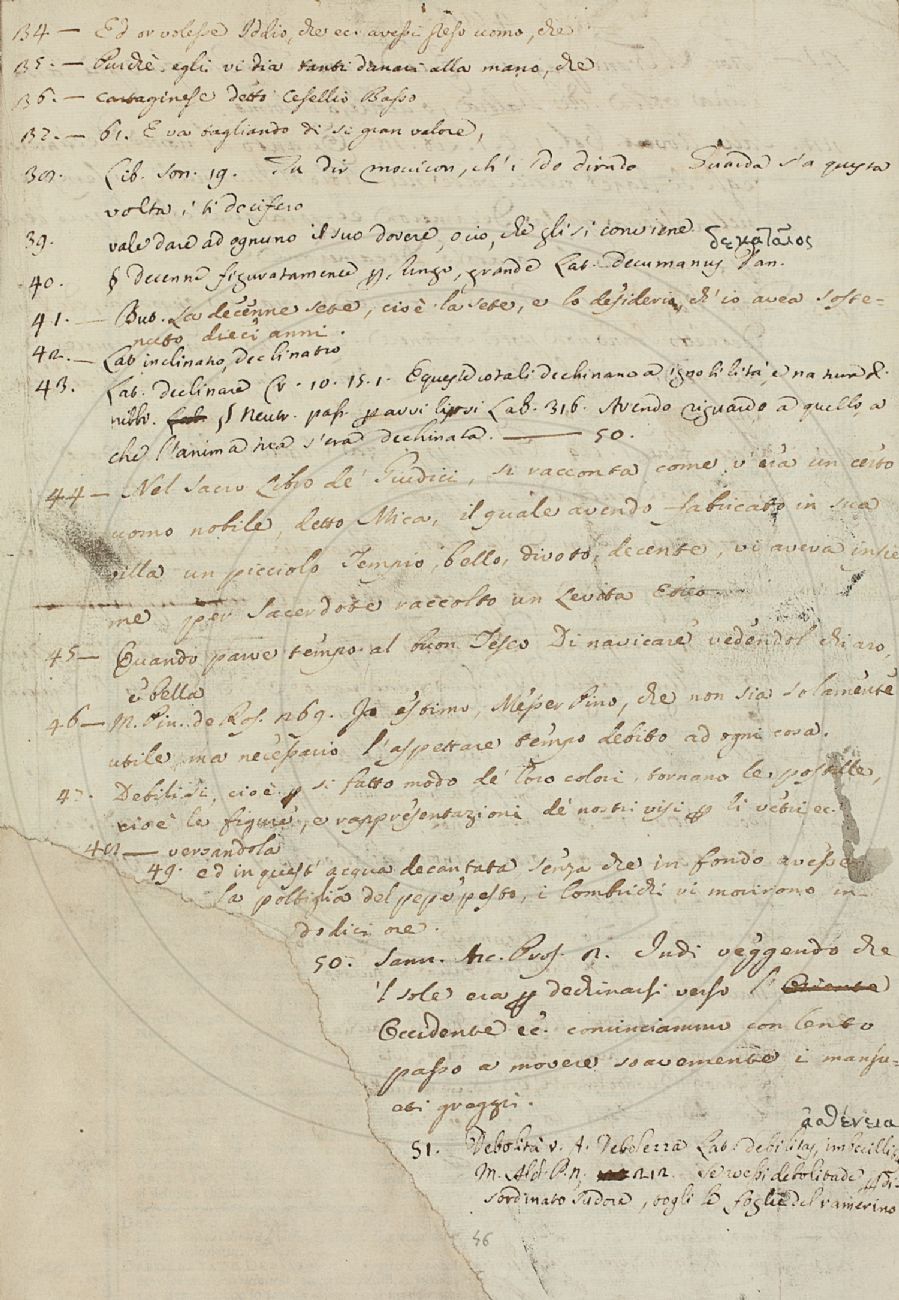 134 — Ed or volesse Iddio, che ec. avessi steso uomo, che
135. — Purchè egli vi dia tanti danari alla mano, che
136. — cartaginese detto Cesellio Basso
137. — 61. E va tagliando di si gran valore,
Lib. son. 19. Tu dir mouicon, ch' i do dirudo Guarda s'a questa
volta i ti decifero
39. vale dare ad ognuno il suo dovere, o cio, che gli si conviene
δεκαταῖος
40. § decenne figuratamente p. lungo, grande Lat. decumanus Dan.
41. — But. La decenne sete, cioè la sete, e lo desiderio, ch' io avea soste=
nuto dieci anni.
42. — Lat inclinatio, declinatio
43. Lat. declinare Cr. 10. 15. 1. E queste cotali declinano a ignobilità, e natura di
nibbo. Lab. § Neutr. pass. Lab. 316. Avendo riguardo a quello, a
che l'anima tua s'era dechinata. — 50.
44 — Nel Sacro Libro de' Giudici, si racconta come v' era un certo
uomo nobile, detto Mica, il quale avendo fabbricato in sua
villa un picciolo Tempio, bello, divoto, decente, vi aveva insie
me per Sacerdote raccolto un Levita
45 — Quando parve tempo al buon Teseo Di navicare vedendol chiaro,
e bella
46 — M. Pin. de Ros. 269. Io estimo, Messer Pino, che non sia solamente
utile, ma necessario l'aspettare tempo debito ad ogni cosa.
47. Debilisi, cioè p si fatto modo de' loro colori, tornano le postille,
cioè le figure, e rappresentazioni de' nostri visi p li vetri ec.
48 — versandola
49. ed in quest' acqua decantata senza che in fondo avesse
la poltiglia del pepe pesto, i lombrichi vi morirono in
dodici ore.
50. Sann. Arc. Pros. 2. Indi veggendo che
'l sole era p dechinarsi verso l' Oriente
Occidente ec. cominciammo con lento
passo a movere soavemente i mansu=
eti greggi.
ἀσθένεια
51. Debolità v. A. Debolezza Lat. debilitas, imbecillit
M. Ald. P. N. 212. Se vuoi debolitade p di-
sordinato sudore, togli le foglie del ramerino
56